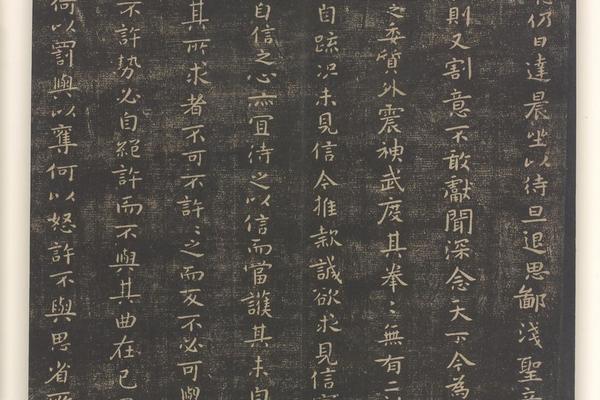 仍日達晨坐以待旦退思鄙淺聖意
則又割意不敢獻聞深念天下今為
之委質外震神武度其拳〻無有二
自疏况未見信今推款誠欲求見信實
自信之心亦宜待之以信而當護其未自
其所求者不可不許〻之而反不必可與
不許勢必自絕許而不與其曲在己
何以罰與以奪何以怒許不與思省所